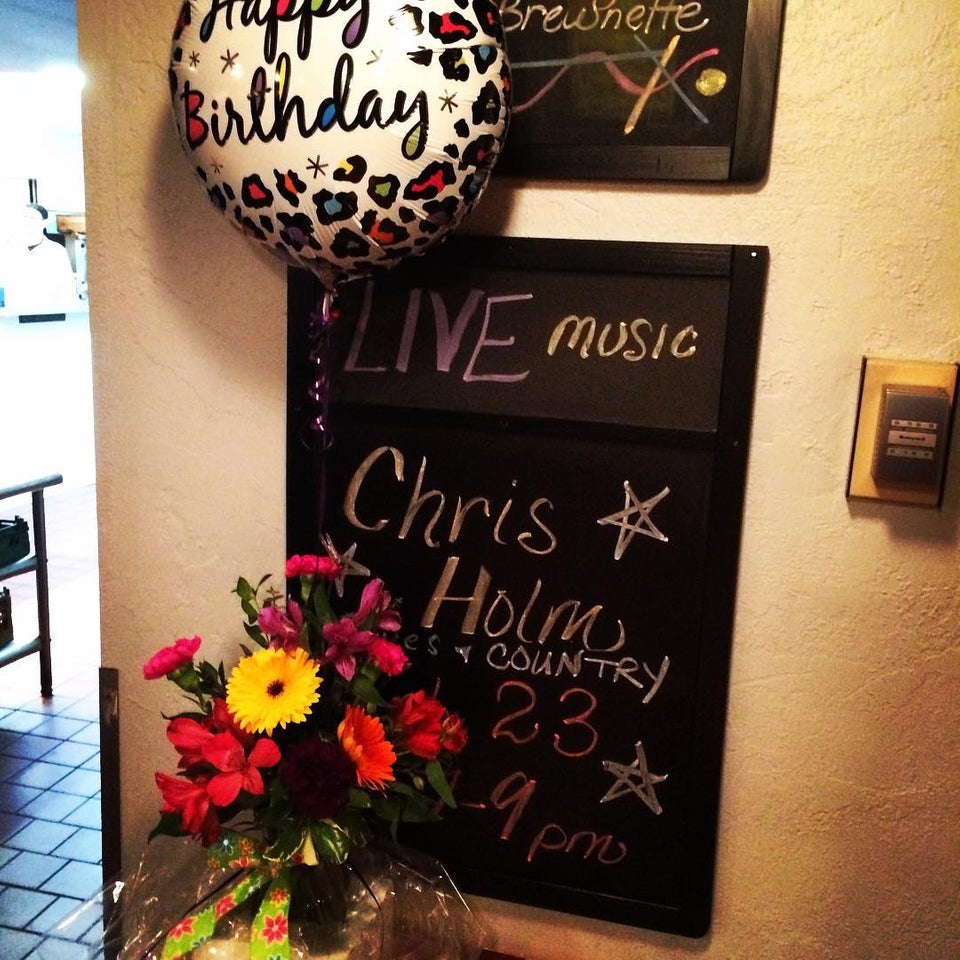 Happy
Birthday
Brewnette
LIVE MUSIC
Chris
Holm
& COUNTRY
23
-9pm
Honeywell